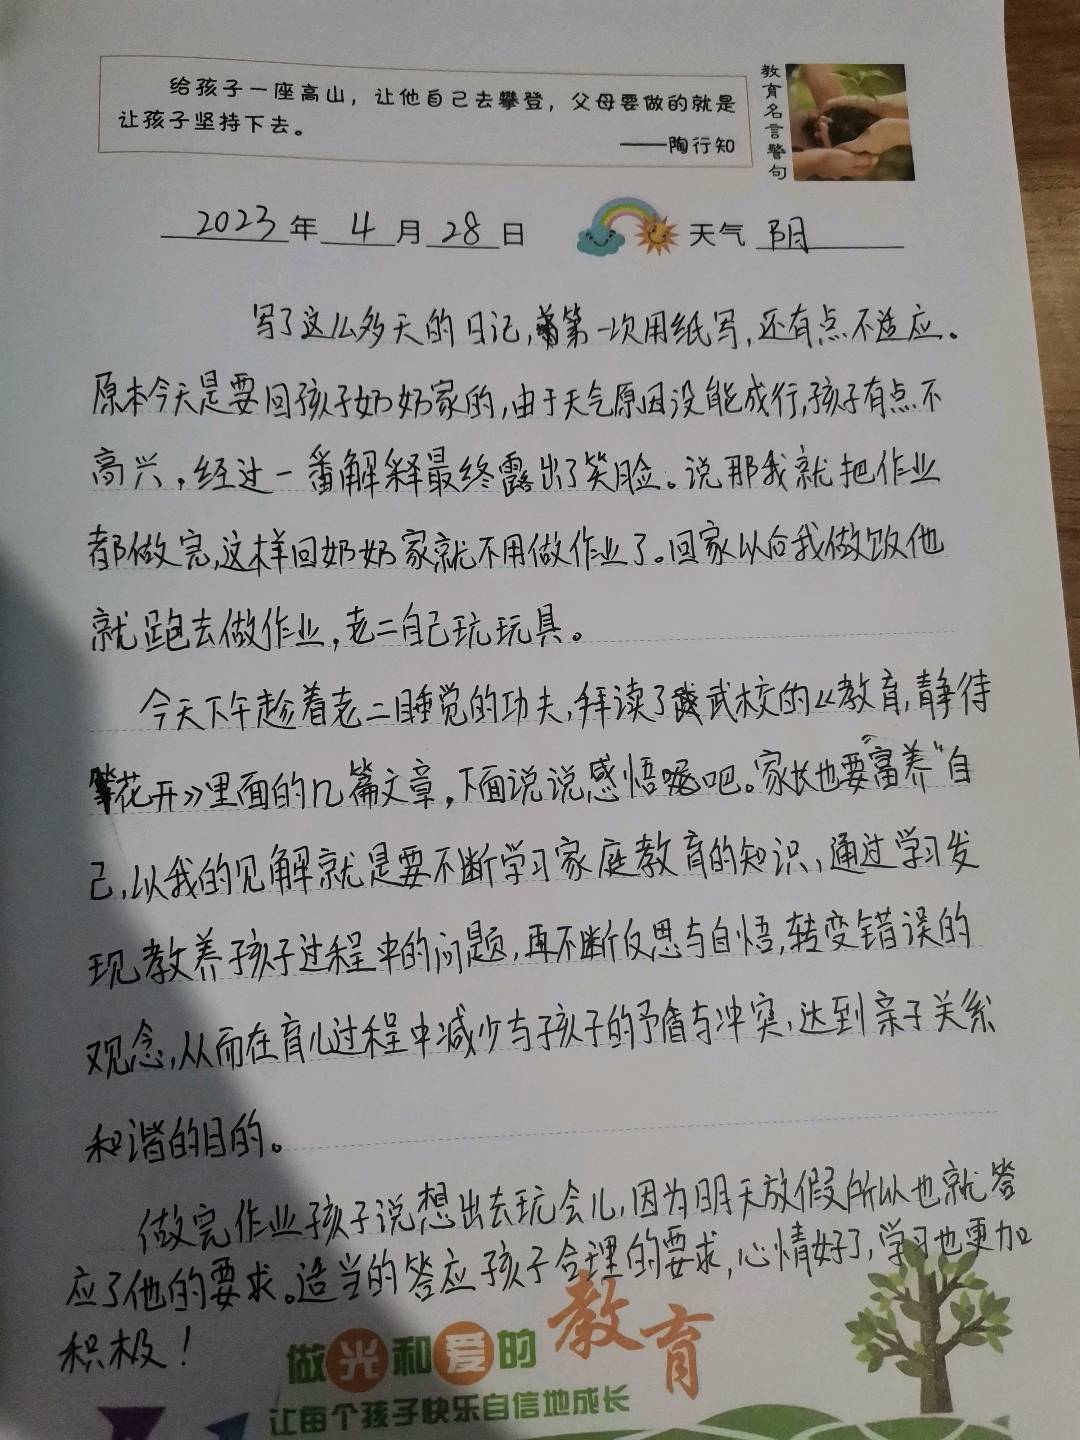 给孩子一座高山，让他自己去攀登，父母要做的就是
让孩子坚持下去。
——陶行知
教育名言警句
2023年 4月28日 天气 阴
写了这么多天的日记，第一次用纸写，还有点不适应。
原本今天是要回孩子奶奶家的，由于天气原因没能成行，孩子有点不
高兴，经过一番解释最终露出了笑脸。说那我就把作业
都做完，这样回奶奶家就不用做作业了。回家以后我做饭他
就跑去做作业，老二自己玩玩具。
今天下午趁着老二睡觉的功夫，拜读了武校的《教育，静待
花开》里面的几篇文章，下面说说感悟吧。家长也要"富养"自
己，以我的见解就是要不断学习家庭教育的知识，通过学习发
现教养孩子过程中的问题，再不断反思与自悟，转变错误的
观念，从而在育儿过程中减少与孩子的矛盾与冲突，达到亲子关系
和谐的目的。
做完作业孩子说想出去玩会儿，因为明天放假所以也就答
应了他的要求。适当的答应孩子合理的要求，心情好了，学习也更加
积极！
做光和爱的教育
让每个孩子快乐自信地成长